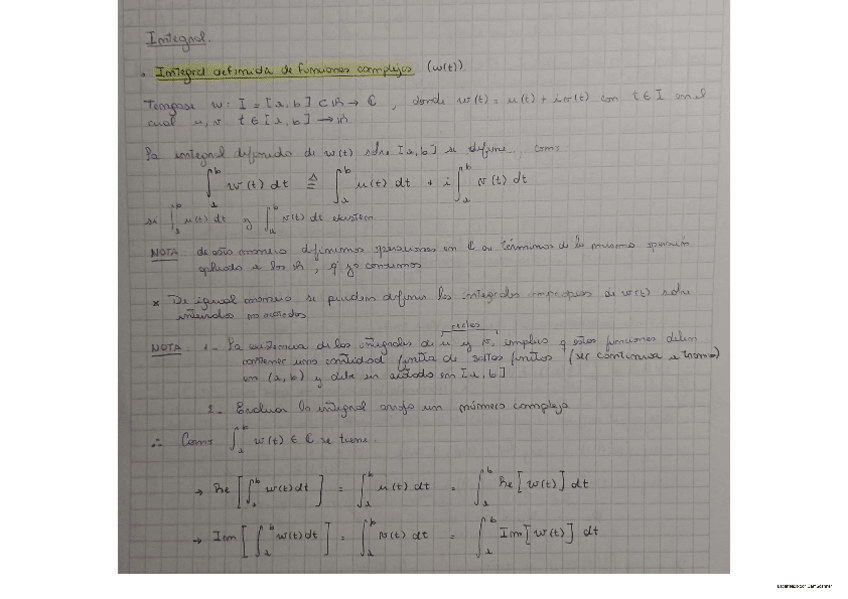 Integral.
• Integral definida de funciones complejas (w(t))
Tengase w: I = [a, b] ⊂ ℝ → ℂ, donde w(t) = u(t) + iv(t) con t ∈ I en el
cual u, v t ∈ [a, b] → ℝ
La integral definida de w(t) sobre [a, b] se define como
∫_a^b w(t) dt ≜ ∫_a^b u(t) dt + i ∫_a^b v(t) dt
si ∫_a^b u(t) dt y ∫_a^b v(t) dt existen
NOTA de esta manera definimos operaciones en ℂ en términos de la misma operación
aplicada a los ℝ, q' ya conocemos
* De igual manera se pueden definir las integrales impropias de w(t) sobre
intervalos no acotados
reales
NOTA: 1- La existencia de las integrales de u y v, implica q estas funciones deben
contener una cantidad finita de saltos finitos (ser continua a tramos)
en (a, b) y debe ser acotado en [a, b]
2- Evaluar la integral arroja un número complejo
∴ Como ∫_a^b w(t) ∈ ℂ se tiene.
→ Re [∫_a^b w(t) dt] = ∫_a^b u(t) dt = ∫_a^b Re[w(t)] dt
→ Im [∫_a^b w(t) dt] = ∫_a^b v(t) dt = ∫_a^b Im[w(t)] dt